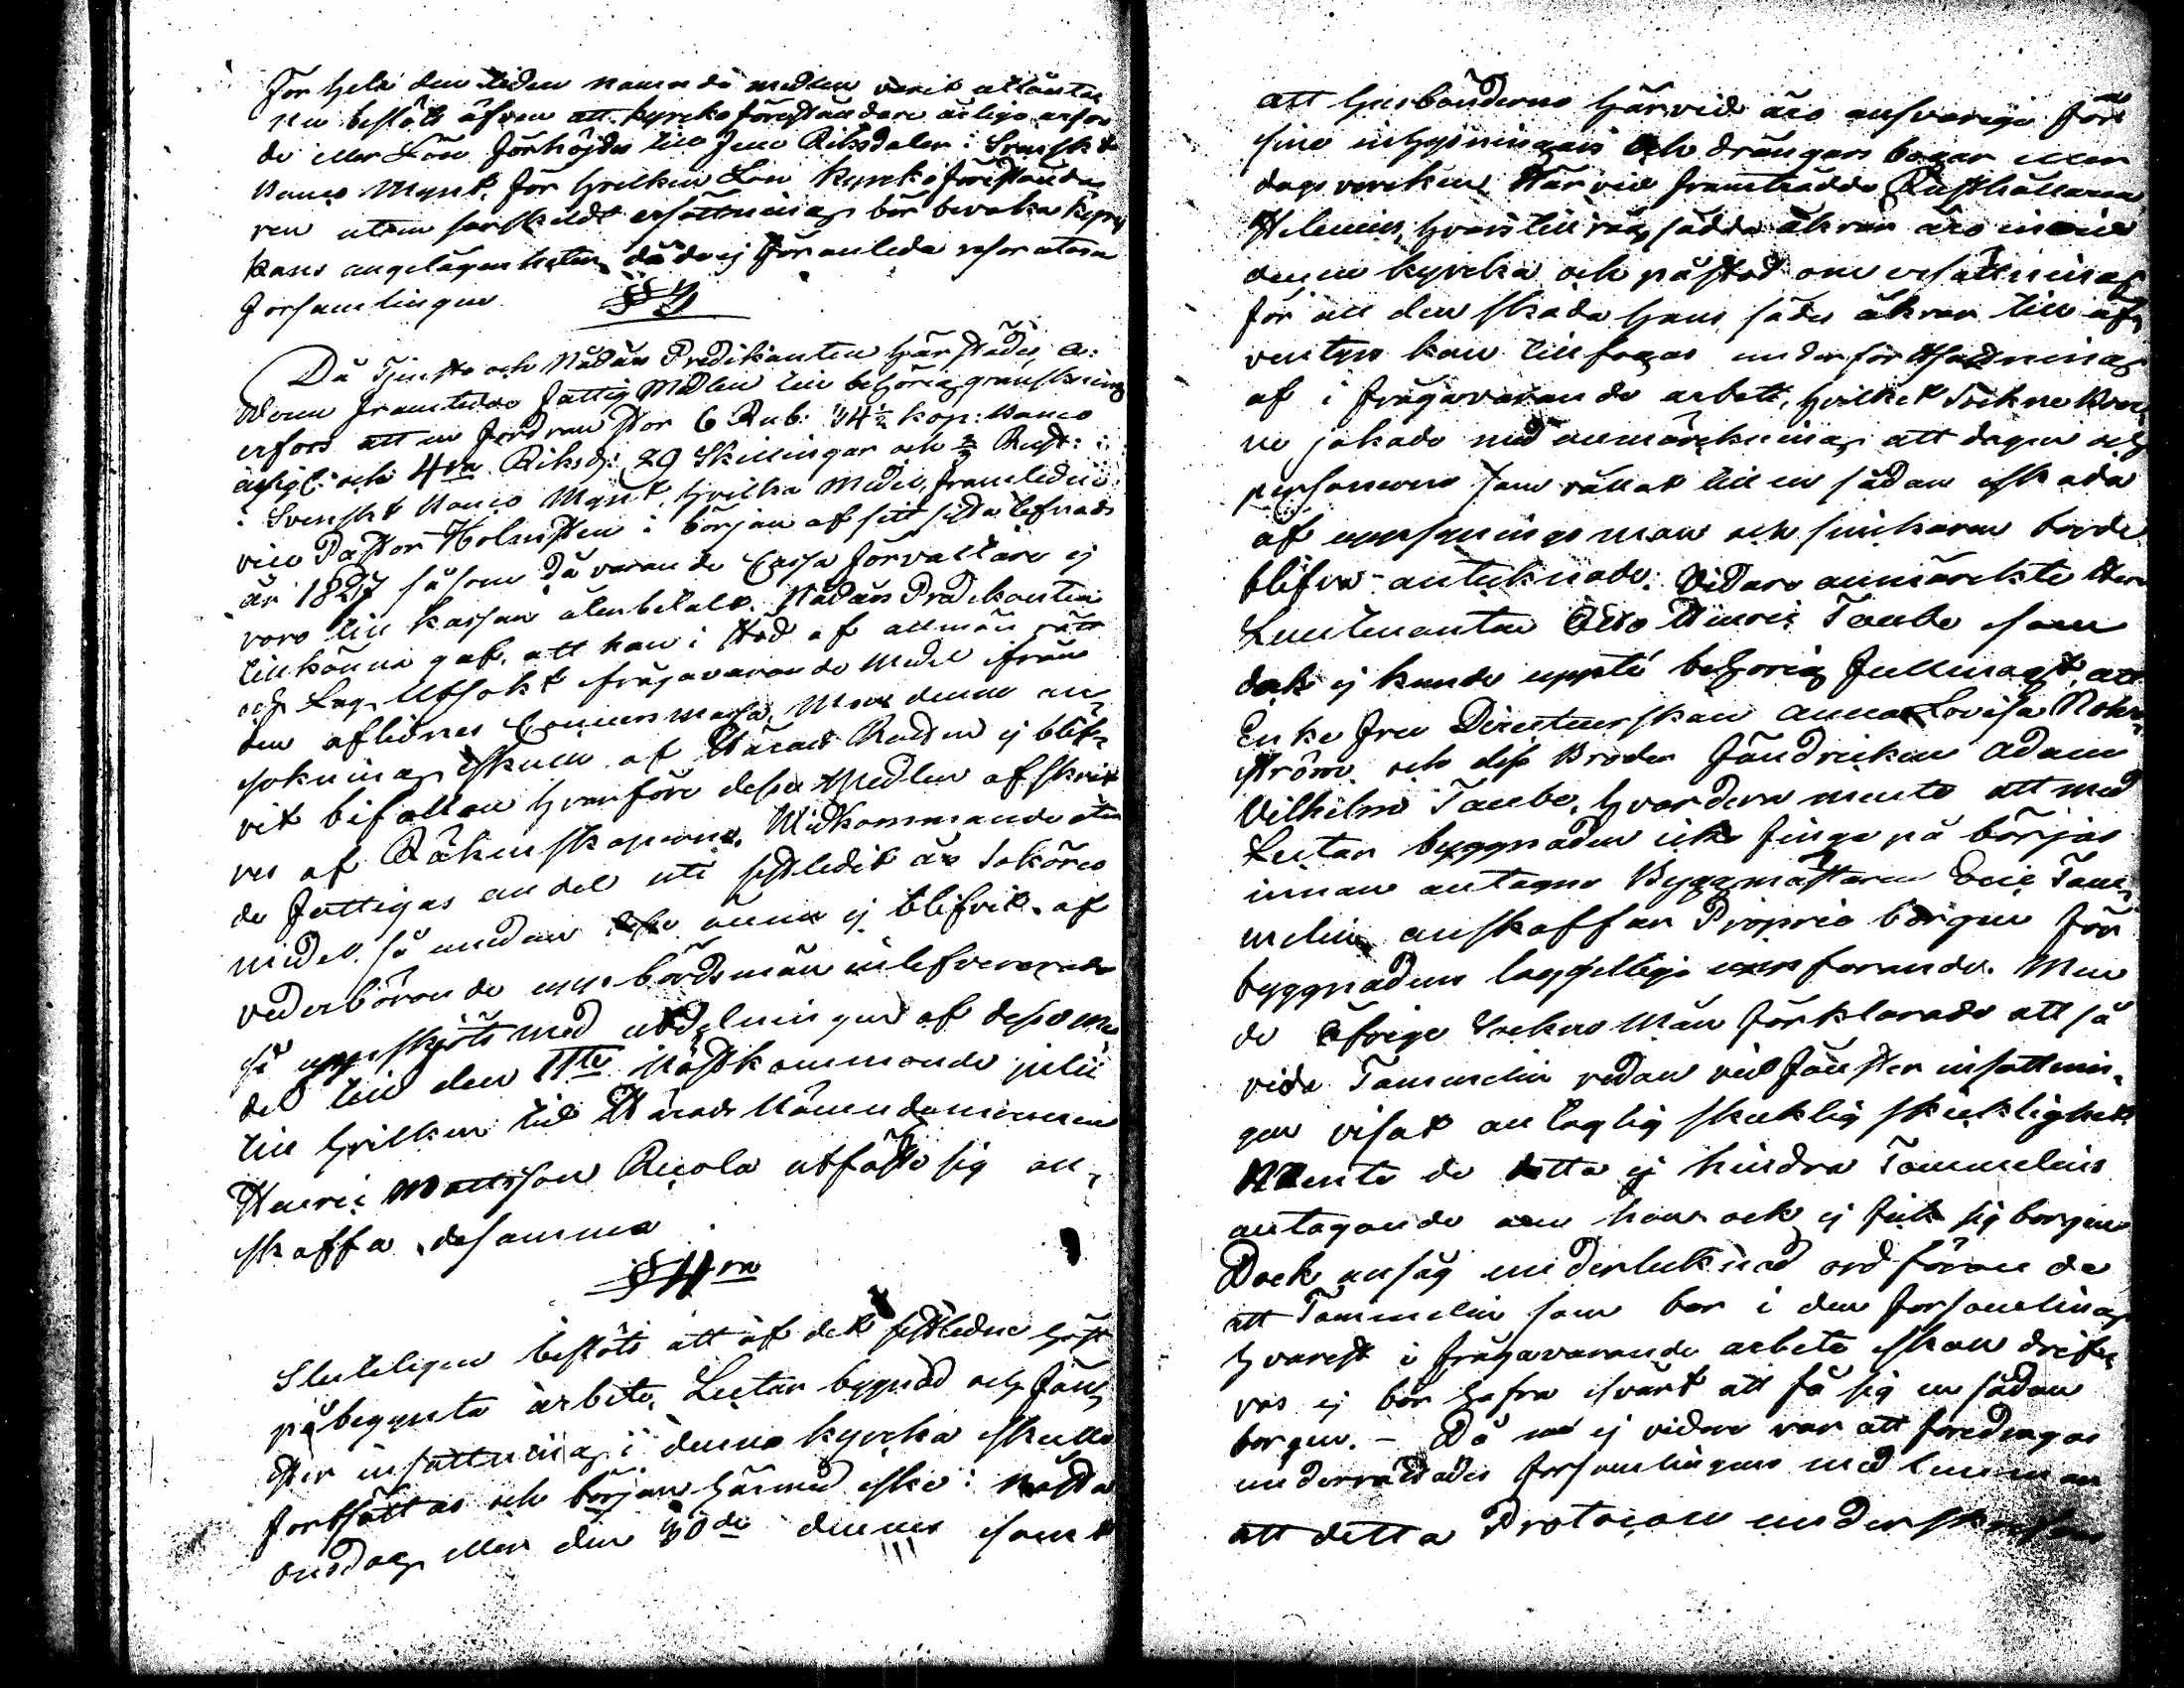 för hela den tiden nämnda medlen varit utlånta
nu beslöts äfven att kyrko föreståndare årliga arfvo
de eller Lön förhöjdes till fem Riksdaler i Svenskt
Banco Mynt, för hvilken Lön kyrko förestånda
ren utom särskildt ersättning bör bevaka kyr
kans angelägenheter, då de ej föranleda resor utom
Församlingen
§ 3
Då Tjenste och Nådårs Predikanten härstädes A:
Wenn framtedde fattig Medlen till behörig granskning
erfors att en fordran stor 6 Rub: 34 1/2 kop: Banco
assig: och 4ra Riksd: 29 Skillingar och Rust:
i Svenskt Banco Mynt, hvilka medel, framledne
vice Pastor Holmsten i början af sitt sista lefnads
år 1827 såsom då varande Cassa förvaltare ej
voro till kassan återbetalt. Nådårs Predikanten
tillkänna gaf, att han i stöd af allmän rätt
och Lag, Utsökt ifrågavarande medel ifrån
den aflidnes Concurs massa, Men denna an
sökning skull af Härads Rätten ej blif
vit bifallen hvarföre dessa Medlen afskrif
ves af Räkenskaperne. Widkommande åter
de fattigas andel uti sistledit års Saköres
medel, så medan desse ännu ej blifvit af
vederbörande uppbördsmän inlefvererade
så uppskjöts med utdelningen af desse me
del till den 1ste nästkommande julii
till hvilken tid Härads Nämndemannen
Henric Mattsson Ruola utfäste sig an-
skaffa desamma
§ 4ra
Sluteligen beslöts att af det sistledne höst
påbegynta arbete, Lectar bygnad och Fön
ster insättning i denna kyrcka skulle
fortsättas och början härmed ske i nästa
onsdag eller den 30de dennes samt
att husbönderne härvid äro ansvarige för
sine inhysningars och drängars bogar eller
dags verken. Härvid framträdde Rusthållaren
Helenius, hvars till råg sådda åkrar äro invid
denna kyrcka och påstod om ersättning
för all den skada hans sådde åkrar till äf
ventyrs kan tillfogas under fortsättning
af i frågavarande arbete, hvilket Sockne Män
ne jakade med anmärkning, att dagen och
personerne som vållat till en sådan skada
af uppsynings man och snickaren borde
blifva antecknade. Vidare anmärckte Herr
Lieutenanten Otto Henric Taube som
dock ej kunde uppté behörig fullmagt, att
Enke fru Directeurskan Anna Lovisa Nohr
ström och dess Broder Fändricken Adam
Vilhelm Taube, hvardera mente att med
Lectar byggnaden icke finge på börjas
innan antagne Byggmästaren Eric Tam
melin anskaffar Proprie borgen för
byggnadens laggilliga uppförande. Men
de öfrige Sockne Män förklarade att så
vida Tammelin redan vid fönster insättnin-
gen visat antaglig skicklig skicklighet
Mente de detta ej hindra Tammelins
antagande om han ock ej fick sig borgen
Dock ansåg undertecknad ordförande
att Tammelin som bor i den församling
hvarest i frågavarande arbete skall drif
vas ej bör hafva svårt att få sig en sådan
borgen. – Då nu ej vidare var att föredragas
underrättades församlingens medlemmar
att detta Protocoll underskrifves